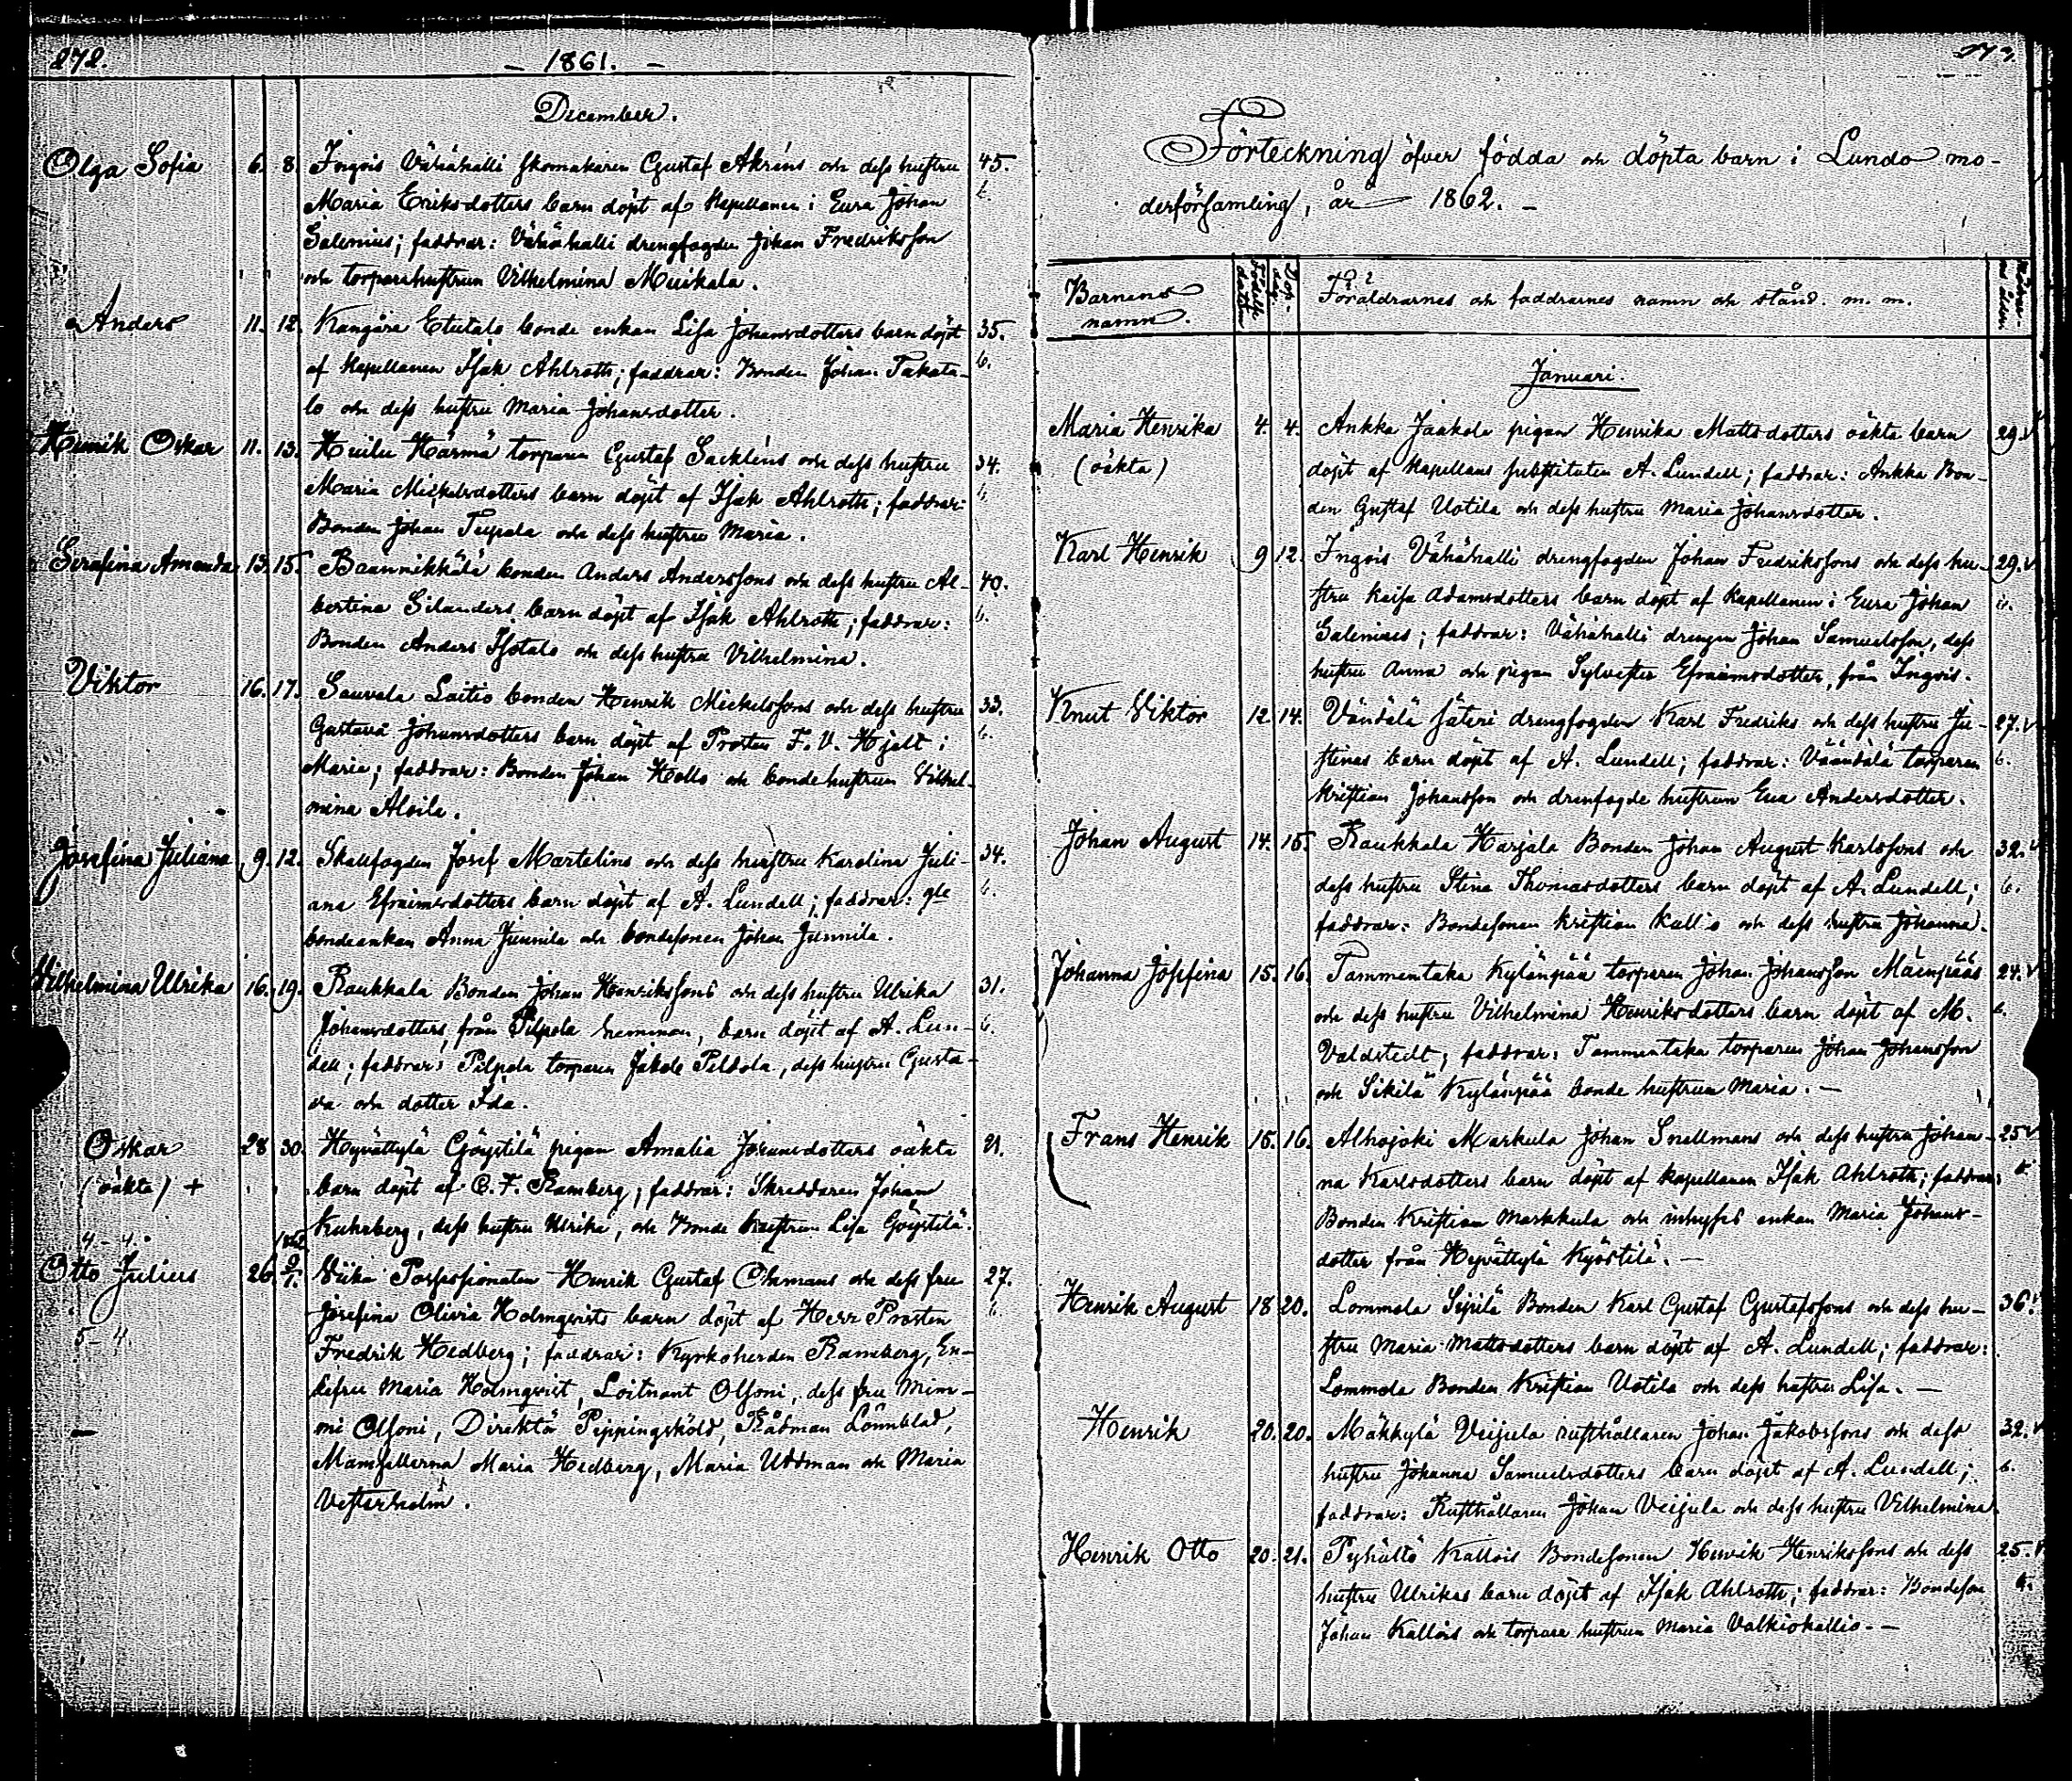 272.
– 1861. –
December.
Olga Sofia 6. 8. Ingois Vähähalli skomakaren Gustaf Akréns och dess hustru 45.
Maria Eriksdotters barn döpt af Kapellanen i Eura Johan
Salenius; faddrar: Vähähalli drengfogden Johan Fredriksson
och torparehustrun Vilhelmina Muikala.
Anders 11. 12. Kangare bonde enkan Lisa Johansdotters barn döpt 35.
af Kapellanen Isak Ahlroth; faddrar: Bonden Johan Takata-
lo och dess hustru Maria Johansdotter.
Henrik Oskar 11. 13. Huilu Härmä torparen Gustaf Sackléns och dess hustru 34.
Maria Mickelsdotters barn döpt af Isak Ahlroth; faddrar:
Bonden Johan och dess hustru Maria.
Serafina Amanda 13. 15. bonden Anders Anderssons och dess hustru Al- 40.
bertina Silanders barn döpt af Isak Ahlroth; faddrar: 6.
Bonden Anders Isotalo och dess hustru Vilhelmina.
Viktor 16. 17. Sauvala Laitio bonden Henrik Mickelssons och dess hustru 33.
Gustava Johansdotters barn döpt af Prosten F. V. Hjelt i 6.
Marie; faddrar: Bonden Johan Hollo och bondehustrun Vilhel-
mina Aloila.
Josefina Juliana 9. 12. Skallfogden Josef Martelins och dess hustru Karolina Juli- 34.
ana Efraimsdotters barn döpt af A. Lundell; faddrar: gle 6.
bondeenkan Anna Junnila och bondesonen Johan Junnila.
Vilhelmina Ulrika 16. 19. Raukkala Bonden Johan Henrikssons och dess hustru Ulrika 31.
Johansdotters, från Pilpola hemman, barn döpt af A. Lun- 6.
dell; faddrar: Pilpola torparen Jakob Peldola, dess hustru Gusta-
va och dotter Ida.
Oskar 28 30. Hyvättylä Göystilä pigan Amalia Johansdotters oäkta 21.
(oäkta) + barn döpt af C. F. Ramberg; faddrar: Skreddaren Johan
Kuhrberg, dess hustru Ulrika, och Bonde hustrun Lisa Göystilä.
4 – 4.
1862
Otto Julius 26. 9/1. Viika Possessionaten Henrik Gustaf Ohrmans och dess fru 27.
Josefina Olivia Holmqvists barn döpt af Herr Prosten 6.
5 4 Fredrik Hedberg; faddrar: Kyrkoherden Ramberg, En-
kefru Maria Holmqvist, Löitnant Olsoni, dess fru Mim-
– mi Olsoni, Direktör Pippingsköld, Rådman Lönnblad,
Mamsellerna Maria Hedberg, Maria Uddman och Maria
Vesterholm.
273.
Förteckning öfver födda och döpta barn i Lundo mo-
derförsamling, år 1862. –
Barnens
namn.
Födelse
datum
Döp.
dag.
Föräldrarnes och faddrarnes namn och stånd. m. m.
Januari.
Maria Henrika 4. 4. Ankka Jaakola pigan Henrika Mattsdotters oäkta barn 29. v
(oäkta) döpt af Kapellans substituten A. Lundell; faddrar: Ankka Bon-
den Gustaf Uotila och dess hustru Maria Johansdotter.
Karl Henrik 9 12. Ingois Vähähalli drengfogden Johan Fredrikssons och dess hu- 29. v
stru Kaisa Adamsdotters barn döpt af Kapellanen i Eura Johan 6.
Salenius; faddrar: Vähähalli drengen Johan Samuelsson, dess
hustru Anna och pigan Sylvester Efraimsdotter, från Ingois.
Knut Viktor 12. 14. Väntälä säteri drengfogden Karl Fredriks och dess hustru Ju- 27. v
stinas barn döpt af A. Lundell; faddrar: Vääntälä torparen 6.
Kristian Johansson och drenfogde hustrun Eva Andersdotter.
Johan August 14. 15. Raukkala Harjala Bonden Johan August Karlssons och 32. v
dess hustru Stina Thomasdotters barn döpt af A. Lundell; 6.
faddrar: Bondesonen Kristian Kallio och dess hustru Johanna.
Johanna Josefina 15. 16. Tammentaka Kylänpää torparen Johan Johansson Mäenpääs 24. v
och dess hustru Vilhelmina Henriksdotters barn döpt af M. 6.
Valdstedt; faddrar: Tammentaka torparen Johan Johansson
och Sikilä Kylänpää bonde hustrun Maria. –
Frans Henrik 15. 16. Alhojoki Markula Johan Snellmans och dess hustru Johan- 25 v
na Karlsdotters barn döpt af Kapellanen Isak Ahlroth; faddrar: 6.
Bonden Kristian Markkula och inhyses enkan Maria Johans-
dotter från Hyvättylä Kyöstilä. –
Henrik August 18 20. Lommola Sipilä Bonden Karl Gustaf Gustafssons och dess hu- 36.
stru Maria Mattsdotters barn döpt af A. Lundell; faddrar:
Lommola Bonden Kristian Uotila och dess hustru Lisa. –
Henrik 20. 20. Mäkkylä Veijula rusthållaren Johan Jakobssons och dess 32. v
hustru Johanna Samuelsdotters barn döpt af A. Lundell; 6.
faddrar: Rusthållaren Johan Veijula och dess hustru Vilhelmina.
Henrik Otto 20. 21. Pyhältö Kallois Bondesonen Henrik Henrikssons och dess 25. v
hustru Ulrikas barn döpt af Isak Ahlroth; faddrar: Bondeson 6.
Johan Kallois och torpare hustrun Maria Valkiokallio. –